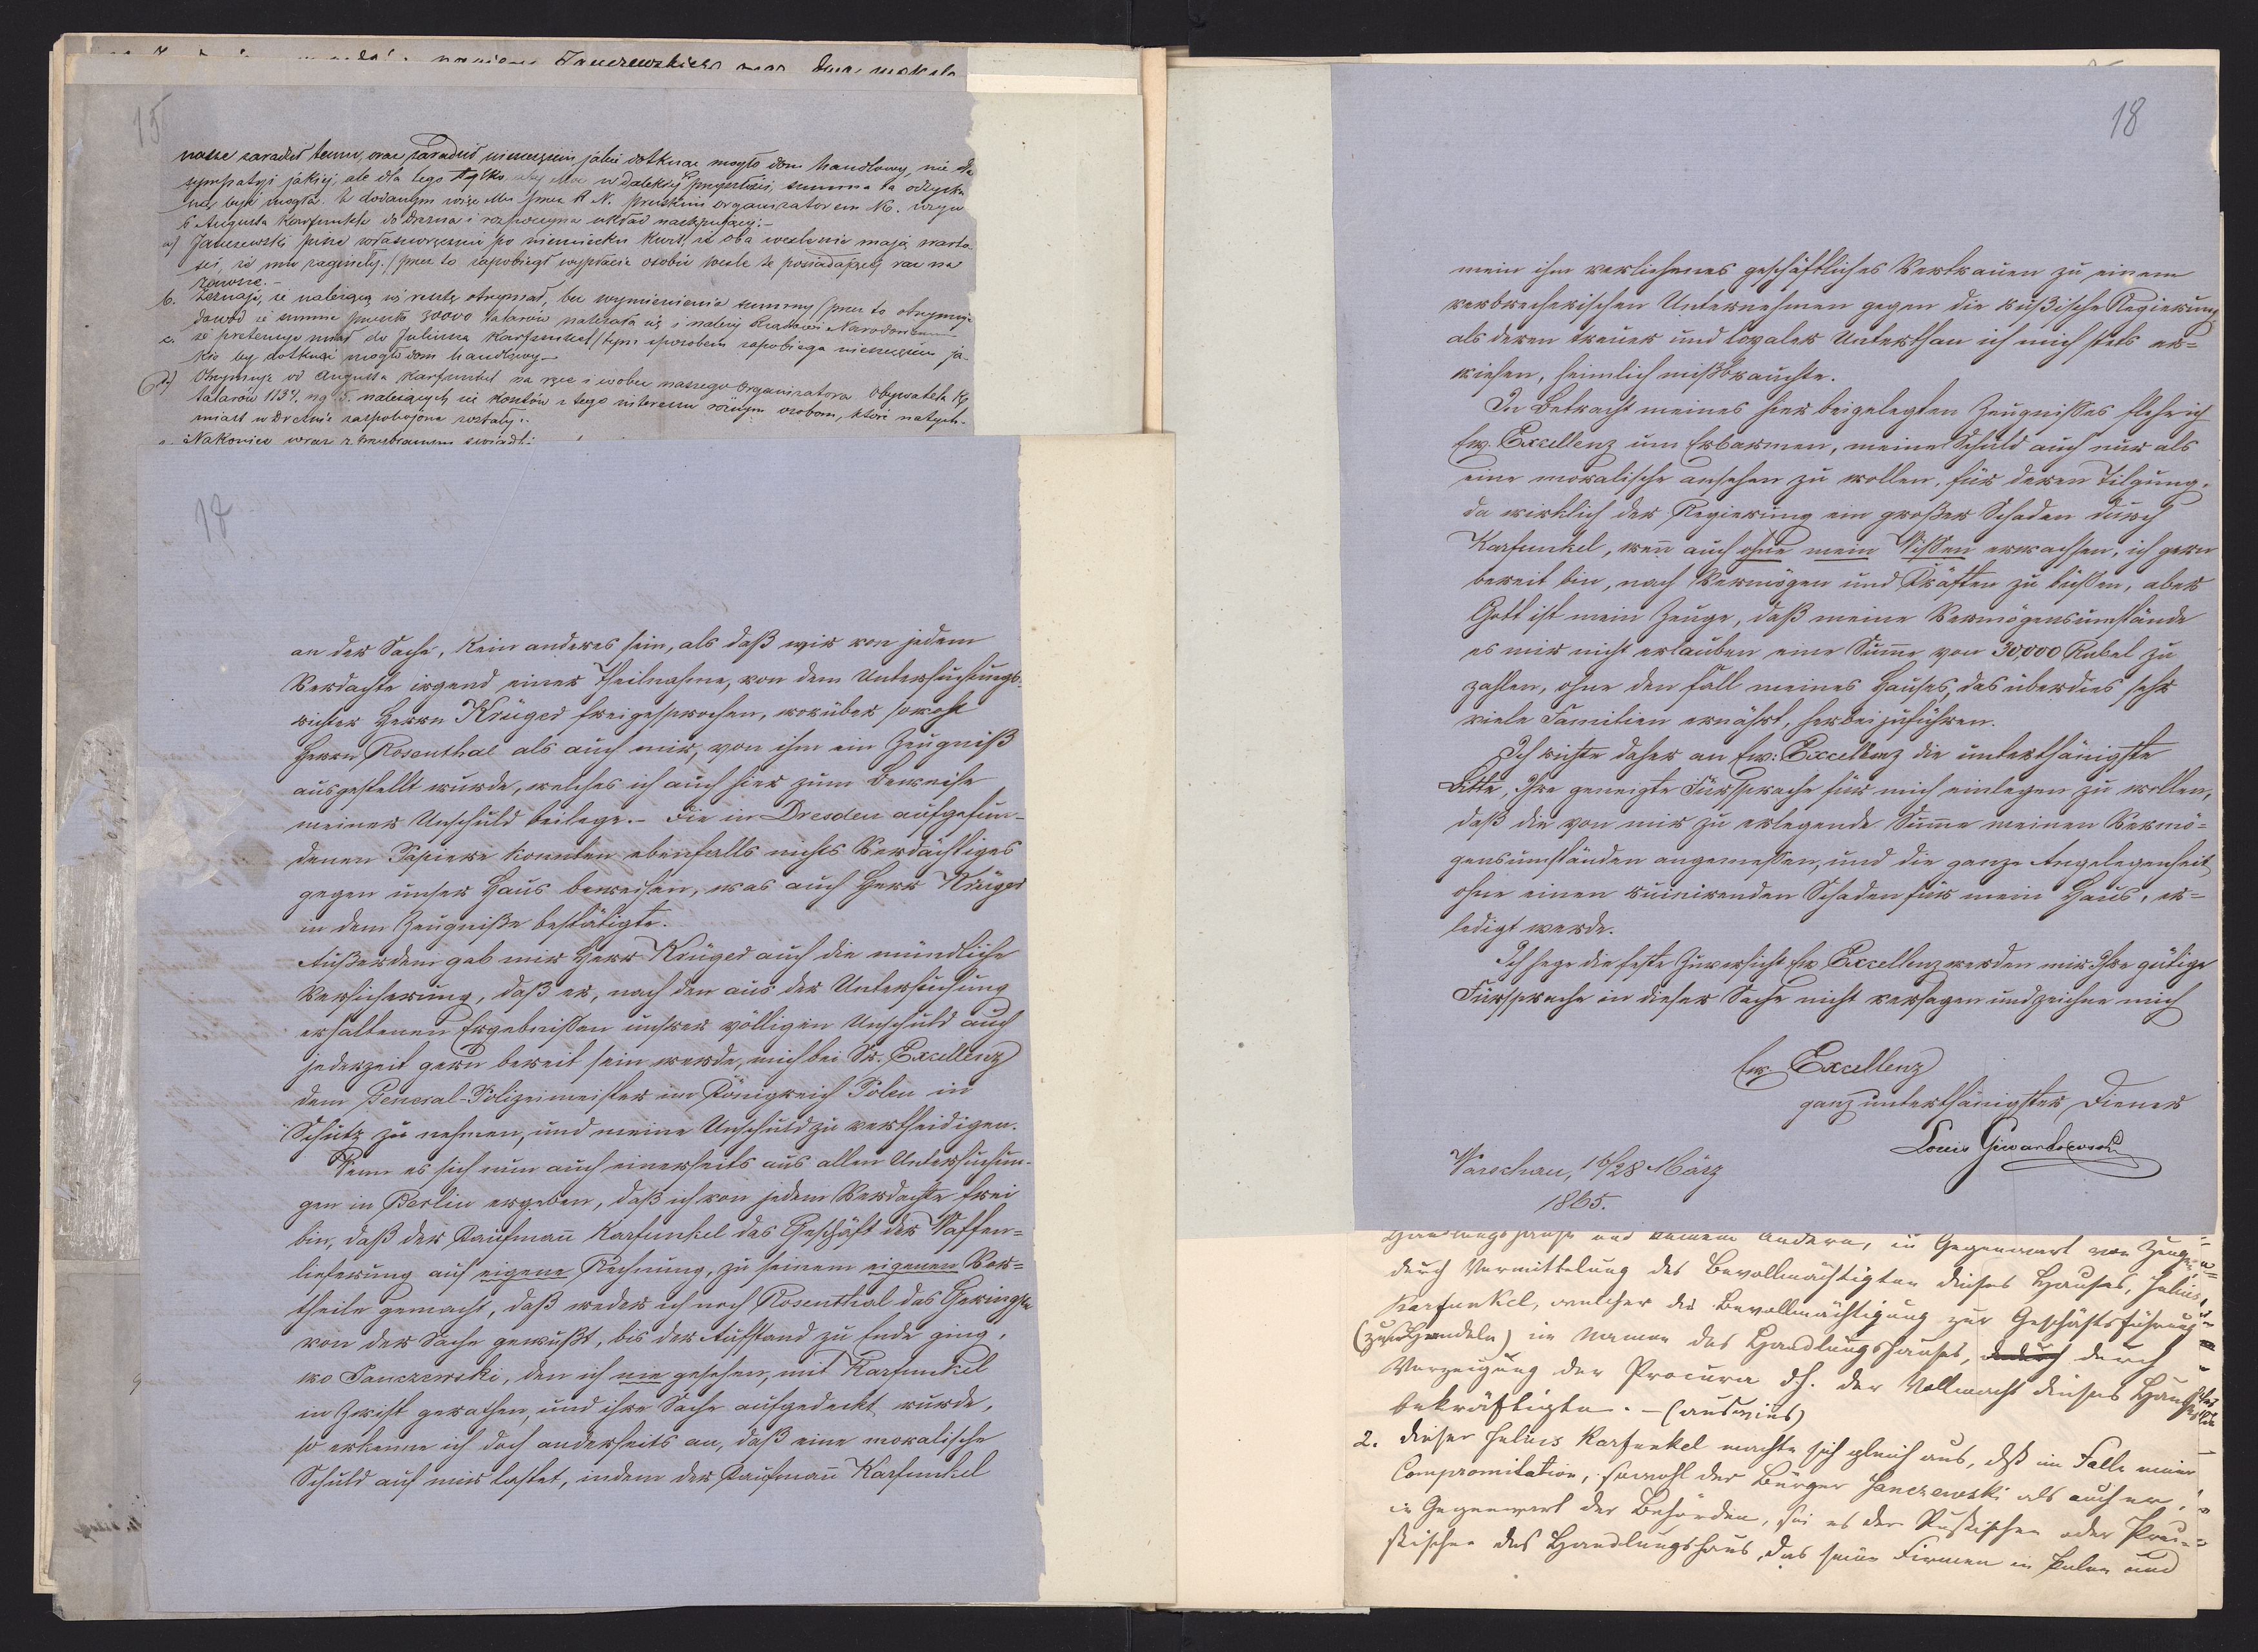 15
nasze zaradził temu, oraz zaradził nieszczęściu jakie dotknąć mogło dom handlowy, nie dla
sympatyi jakiej, ale dla tego tylko aby w dalekiej przyszłości, summa ta odzyska
ną być mogła.
a) Janczewski pisze własnoręcznie po niemiecku kwit, iż oba wexle nie mają warto-
ści, iż mu zaginęły. / przez to zapobiegł wypłacie osobie wexle te posiadającej raz na
zawsze. –
b. Zeznaje, iż należącą się resztę otrzymał, bez wymienienia summy / przez to otrzymuje
dowód iż summa 30000 talarów należała się i należy Rządowi Narodowemu
c. iż pretensye miał do Juliusza Karfunkel / tym sposobem zapobiega nieszczęściu ja-
kie by dotknąć mogło dom handlowy –
d) Otrzymuje od Augusta Karfunkel na rzecz i wobec naszego Organizatora Obywatela K
talarów 1137. należących się kosztów z tego interessu różnym osobom, które natych-
miast w Dreznie zaspokojone zostały: –
18
an der Sache, kein anderes sein, als daß wir von jedem
Verdachte irgend einer Theilnahme, von dem Untersuchungs-
richter Herrn Krüger freigesprochen, worüber sowohl
Herrn Rosenthal als auch mir, von ihm ein Zeugniß
ausgestellt wurde, welches ich auch hier zum Beweise
meiner Unschuld beilege. – Die in Dresden aufgefun-
denen Papiere konnten ebenfalls nichts Verdächtiges
gegen unser Haus beweisen, was auch Herr Krüger
in dem Zeugniße bestätigte.
Außerdem gab mir Herr Krüger auch die mündliche
Versicherung, daß er, nach den aus der Untersuchung
erhaltenen Ergebnißen unsrer völligen Unschuld auch
jederzeit gern bereit sein werde, mich bei Sr. Excellenz
dem General-Polizeimeister im Königreich Polen in
Schutz zu nehmen, und meine Unschuld zu vertheidigen.
Wenn es sich nun auch einerseits aus allen Untersuchun-
gen in Berlin ergeben, daß ich von jedem Verdachte frei
bin, daß der Kaufmañ Karfunkel das Geschäft der Waffen-
lieferung auf eigene Rechnung, zu seinem eigenen Vor-
theile gemacht, daß weder ich noch Rosenthal das Geringste
von der Sache gewußt, bis der Aufstand zu Ende ging,
wo Janczewski, den ich nie gesehen, mit Karfunkel
in Zwist gerathen, und ihre Sache aufgedeckt wurde,
so erkenne ich doch anderseits an, daß eine moralische
Schuld auf mir lastet, indem der Kaufmañ Karfunkel
18
mein ihm verliehenes geschäftliches Vertrauen zu einem
verbrecherischen Unternehmen gegen die rußische Regierung
als deren treuer und loyaler Unterthan ich mich stets er-
wiesen, heimlich mißbrauchte.
In Betracht meines hier beigelegten Zeugnißes flehe ich
Ew. Excellenz um Erbarmen, meine Schuld auch nur als
eine moralische ansehen zu wollen, für deren Tilgung,
da wirklich der Regierung ein großer Schaden durch
Karfunkel, weñ auch ohne mein Wißen erwachsen, ich gern
bereit bin, nach Vermögen und Kräften zu büßen, aber
Gott ist mein Zeuge, daß meine Vermögensumstände
es mir nicht erlauben eine Sum̃e von 30,000 Rubel zu
zahlen, ohne den Fall meines Hauses, das überdies sehr
viele Familien ernährt, herbeizuführen.
Ich richte daher an Ew: Excellenz die unterthänigste
Bitte, Ihre geneigte Fürsprache für mich einlegen zu wollen,
daß die von mir zu erlegende Sum̃e meinen Vermö-
gensumständen angemeßen, und die ganze Angelegenheit
ohne einen ruinirenden Schaden für mein Haus, er-
ledigt werde.
Ich hege die feste Zuversicht Ew. Excellenz werden mir Ihre gütige
Fürsprache in dieser Sache nicht versagen und zeichne mich
Ew. Excellenz
ganz unterthänigster Diener
Louis
Warschau, 16/28 März
1865.
durch Vermittelung des Bevollmächtigten dieses Hauses, Julius
Karfunkel, welcher die Bevollmächtigung zur Geschäftsführung
(zum Handeln) im Namen des Handlungshauses, durch
Vorzeigung der Procura d.h. der Vollmacht dieses Hauses
bekräftigte. – (auswies)
2. Dieser Julius Karfunkel machte sich gleich aus, daß im Falle einer
Compromitation, sowohl der Bürger Janczewski als auch er,
in Gegenwart der Behörden, sei es der Russischen oder Preu-
ssischen das Handlungshaus, das seine Firmen in Polen und